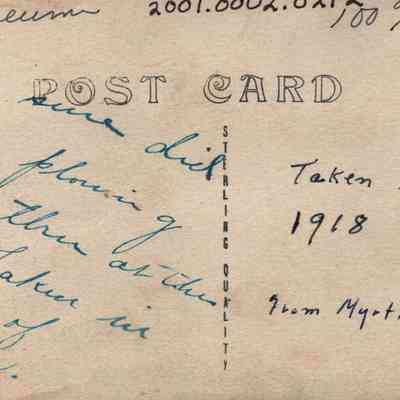 2001.0002.0212
100
POST CARD
sure did
plowing
thru at the
taken in
of
STERLING QUALITY
Taken
1918
From Myrt